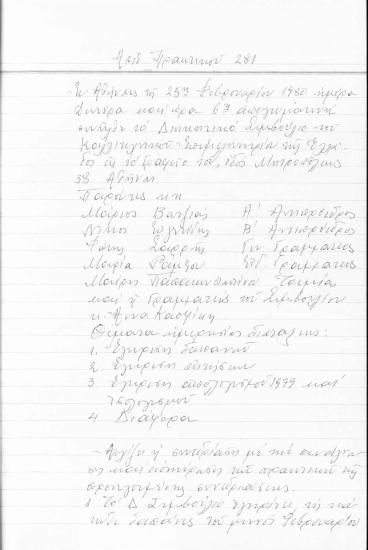 Αριθ Πρακτικού 281
Εν Αθήναις τη 25η Φεβρουαρίου 1980 ημέρα
Δευτέρα και ώρα 6η απογευματινή
συνήλθε το Διοικητικό Συμβούλιο του
Καλλιτεχνικού Επιμελητηρίου της Ελλά
δος εις τα γραφεία του, οδός Μητροπόλεως
38 Αθήναι.
Παρόντες κ.κ
Μάριος Βατζιάς Α' Αντιπρόεδρος
Β' Αντιπρόεδρος
Φώτης Σαρρής Γεν Γραμματεύς
Μαρία Ειδ. Γραμματεύς
Μαίρη Ταμία
και η Γραμματεύς του Συμβουλίου
κ. Άννα
Θέματα ημερησίας διατάξεως:
1. Έγκριση δαπανών
2. Έγκριση αιτήσεων
3 Έγκριση απολογισμού 1979 και
προϋπολογισμού
4 Διάφορα
- Αρχίζει η συνεδρίαση με την ανάγνω
ση και επικύρωση των πρακτικών της
προηγουμένης συνεδριάσεως.
1. Το Δ Συμβούλιο εγκρίνει τις
δαπάνες του μηνός Φεβρουαρίου